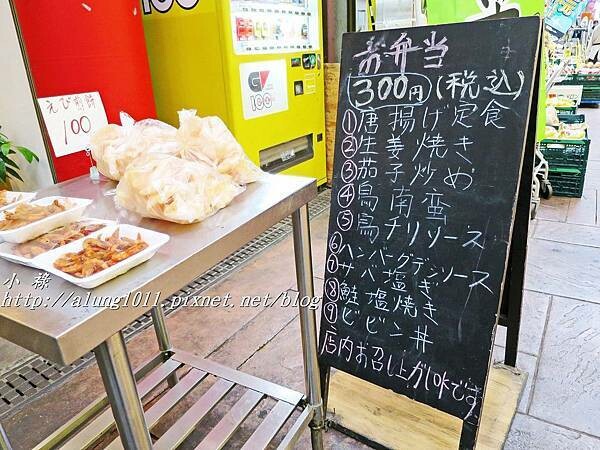 お弁当
300円(税込)
①唐揚げ定食
②生姜焼き
③茄子炒め
④鳥南蛮
⑤鳥チリソース
⑥ハンバーグデンソース
⑦サバ塩ぎ
⑧鮭塩焼き
⑨ビビン丼
店内お召し上がしOKです
えび煎餅
100
100
小 綠
http://along1011.pixnet.net/blog